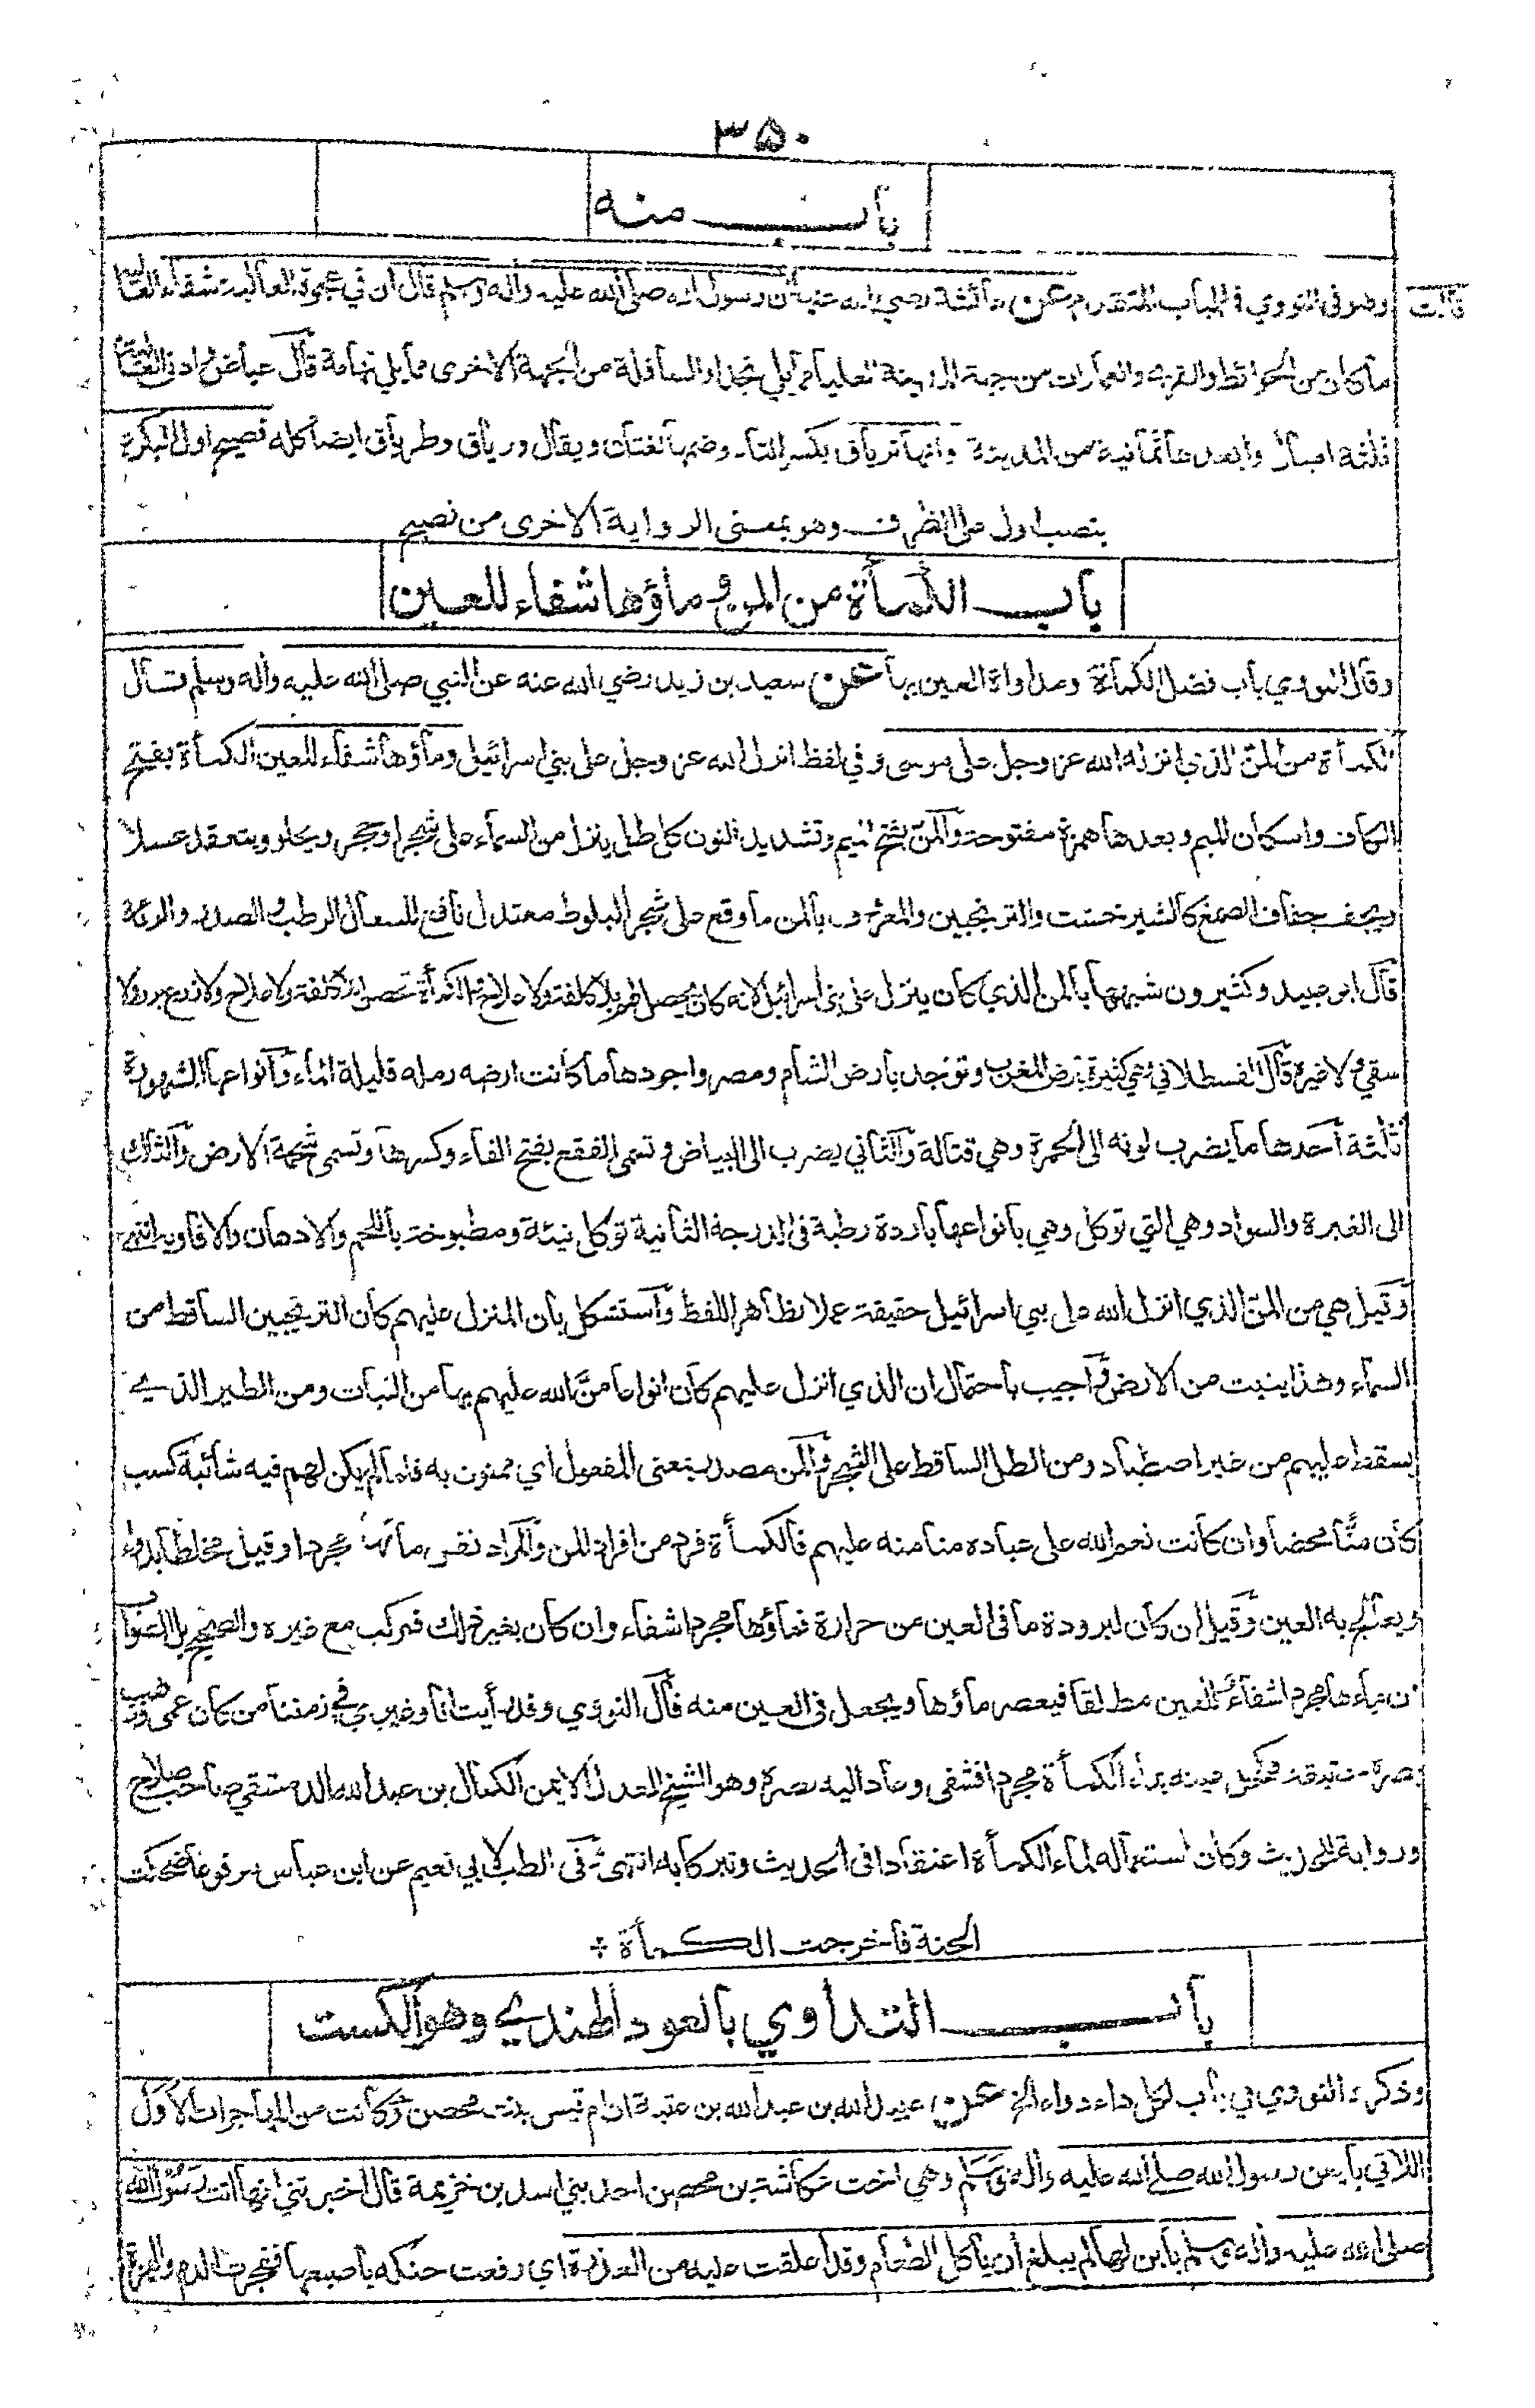 ٣٥٠
باب منه
قالت
وهو في النووي في الباب المتقدم عن عائشة رضي الله عنها أن رسول الله صلى الله عليه وأله وسلم قال ان في عجوة العالية شفاء العالية
ما كان من الحوائط والقرى والعمارات من جهة المدينة العليا مما يلي نجدا والسافلة من الجهة الاخرى مما يلي تهامة قال عياض وادنى العالية
ثلثة اميال وابعدها ثمانية من المدينة وانها ترياق بكسر التاء وضمها لغتان ويقال درياق وطرياق ايضا كله فصيح اول البكرة
بنصب اول على الظرف وهو بمعنى الرواية الاخرى من تصبح
باب الكمأة من المن وماؤها شفاء للعين
وقال النووي باب فضل الكمأة ومداواة العين بها عن سعيد بن زيد رضي الله عنه عن النبي صلى الله عليه وأله وسلم قال
الكمأة من المن الذي انزله الله عز وجل على موسى وفي لفظ انزل الله عز وجل على بني اسرائيل وماؤها شفاء للعين الكمأة بفتح
الكاف واسكان الميم وبعدها همزة مفتوحة والمن بفتح الميم وتشديد النون كل طل ينزل من السماء على شجر او حجر ويحلو وينعقد عسلا
ويجف جفاف الصمغ كالشيرخشت والترنجبين والمعروف بالمن ما وقع على شجر البلوط معتدل نافع للسعال الرطب والصدر والرئة
قال ابو عبيد وكثيرون شبهها بالمن الذي كان ينزل على بني اسرائيل لانه كان يحصل لهم بلا كلفة ولا علاج والكمأة تحصل بلا كلفة ولا علاج ولا زرع بزر ولا
سقي ولا غيره قال القسطلاني وهي كثيرة بارض المغرب وتوجد بارض الشام ومصر واجودها ما كانت ارضه رملة قليلة الماء وانواعها المشهورة
ثلثة احدها ما يضرب لونه الى الحمرة وهي قتالة والثاني يضرب الى البياض وتسمى الفقع بفتح الفاء وكسرها وتسمى شحمة الارض والثالث
الى الغبرة والسواد وهي التي توكل وهي بانواعها باردة رطبة في الدرجة الثانية توكل نيئة ومطبوخة باللحم والادهان والافاويه انتهى
وقيل هي من المن الذي انزل الله على بني اسرائيل حقيقة عملا بظاهر اللفظ واستشكل بان المنزل عليهم كان الترنجبين الساقط من
السماء وهذا ينبت من الارض واجيب باحتمال ان الذي انزل عليهم كان انواعا من الله عليهم بها من النبات ومن الطير الذي
يسقط عليهم من غير اصطياد ومن الطل الساقط على الشجر والمن مصدر بمعنى المفعول اي ممنون به فلما لم يكن لهم فيه شائبة كسب
كان منّا محضا وان كانت نعم الله على عباده منا منه عليهم فالكمأة فرد من افراد المن والمراد نفس مائها مجردا وقيل مخلطا بدواء
ويعالج به العين وقيل ان كان لبرودة ما في العين من حرارة فماؤها مجردا شفاء وان كان بغير ذلك فمركب مع غيره والصحيح بل الصواب
ان ماءها مجردا شفاء للعين مطلقا فيعصر ماؤها ويجعل في العين منه قال النووي وقد رأيت انا وغيري في زمننا من كان عمي وذهب
بصره حقيقة فكحل عينه بماء الكمأة مجردا فشفى وعاد اليه بصره وهو الشيخ العدل الايمن الكمال بن عبد الله الدمشقي صاحب صلاح
ورواية للحديث وكان استعماله لماء الكمأة اعتقادا في الحديث وتبركا به انتهى وفي الطب لابي نعيم عن ابن عباس مرفوعا ضحكت
الجنة فاخرجت الكمأة +
باب التداوي بالعود الهندي وهو الكست
وذكره النووي في باب لكل داء دواء الخ عن عبيد الله بن عبد الله بن عتبة ان ام قيس بنت محصن وكانت من المهاجرات الأول
اللاتي بايعن رسول الله صلى الله عليه وأله وسلم وهي اخت عكاشة بن محصن احد بني اسد بن خزيمة قال اخبرتني انها اتت رسول الله
صلى الله عليه وأله وسلم بابن لها لم يبلغ ان يأكل الطعام وقد اعلقت عليه من العذرة اي رفعت حنكه باصبعها ففجرت الدم